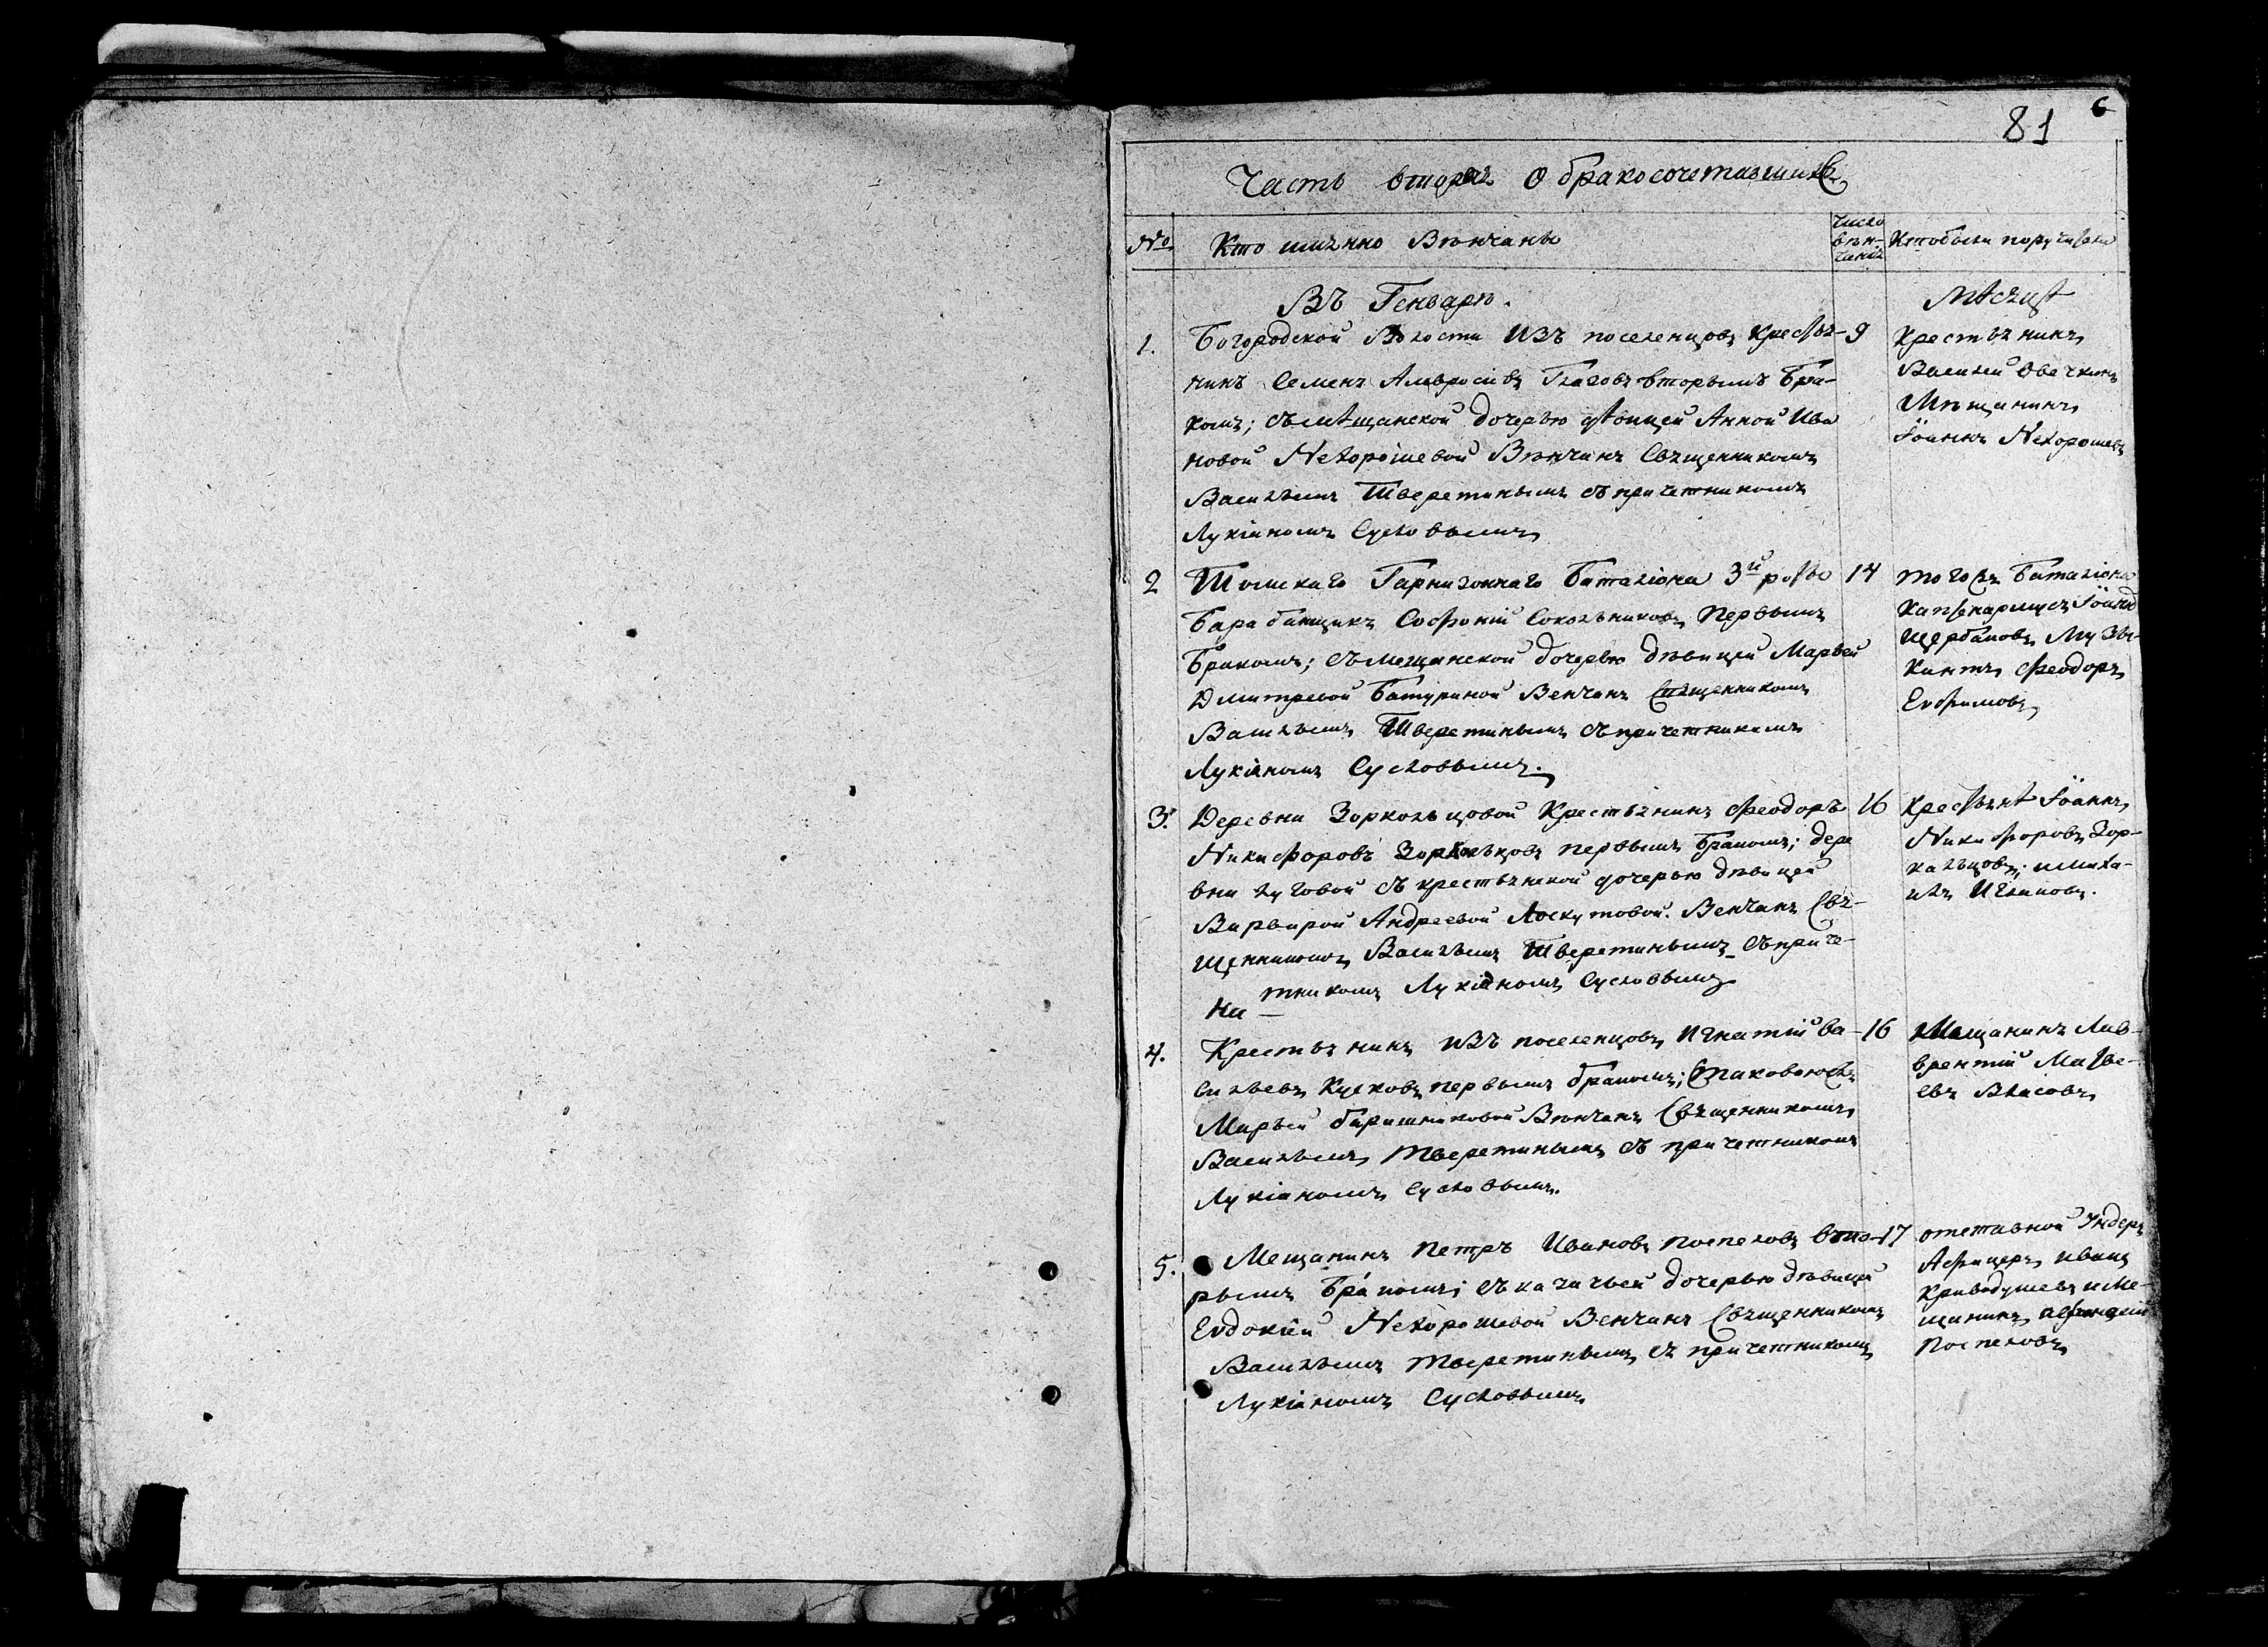 81 6
Часть вторая о бракосочетавшихся
№ Кто имянно Вѣнчаны Число вѣн-чанія Кто были поручители
Въ Генварѣ. Мѣсяцѣ
1. Богородской Волости изъ поселенцовъ крестья- 9
нинъ Семенъ Амвросіевъ Глаговъ вторымъ бра-
комъ; съ мѣщанской дочерью дѣвицей Анной Ива
новой Нехорошевой Вѣнчанъ Священникомъ
Васильемъ Тверетинымъ съ причетникомъ
Лукіаномъ Сусловымъ
Крестьянинъ
Василей Овечкинъ
Мѣщанинъ
Іоаннъ Нехорошевъ
2 Томскаго Гарнизоннаго Баталіона 3й роты 14
Барабанщикъ Софроній Сокольниковъ Первымъ
Бракомъ; съ мещанской дочерью дѣвицей Марьей
Дмитревой Батуриной Венчанъ Священникомъ
Васильемъ Тверетинымъ съ причетникомъ
Лукіаномъ Сусловымъ.
тогожъ Баталіона
Каптенармусъ Іоаннъ
Щербаковъ Музы-
кантъ Феодоръ
Ефимовъ
3. Деревни Зоркольцовой Крестьянинъ Феодоръ 16
Никифоровъ Зоркольцовъ первымъ бракомъ; дере
вни Луговой съ крестьянской дочерью дѣвицей
Варварой Андреевой Лоскутовой. Венчанъ Свя-
щенникомъ Васильемъ Тверетинымъ съ приче-
тникомъ Лукіаномъ Сусловымъ
Ни
Крестьянѣ Іоаннъ
Никифоровъ Зор-
кальцовъ; и Миха-
илъ Иглаковъ.
4. Крестьянинъ изъ поселенцовъ Игнатій Ва- 16
сильевъ Кусковъ первымъ бракомъ; с таковоюже
Марьей Барышниковой Вѣнчанъ Священникомъ
Васильемъ Тверетинымъ съ причетникомъ
Лукіаномъ Сусловымъ.
Мещанинъ Лав-
врентій Матве-
евъ Власовъ
5. Мещанинъ Петръ Ивановъ Поспеловъ вто- 17
рымъ Бракомъ; съ казачьей дочерью дѣвицей
Евдокіей Нехорошевой Венчанъ Священникомъ
Васильемъ Тверетинымъ съ причетникомъ
Лукіаномъ Сусловымъ
отставной Ундеръ
Афицеръ Иванъ
Криводушевъ и Ме-
щанинъ
Поспеловъ